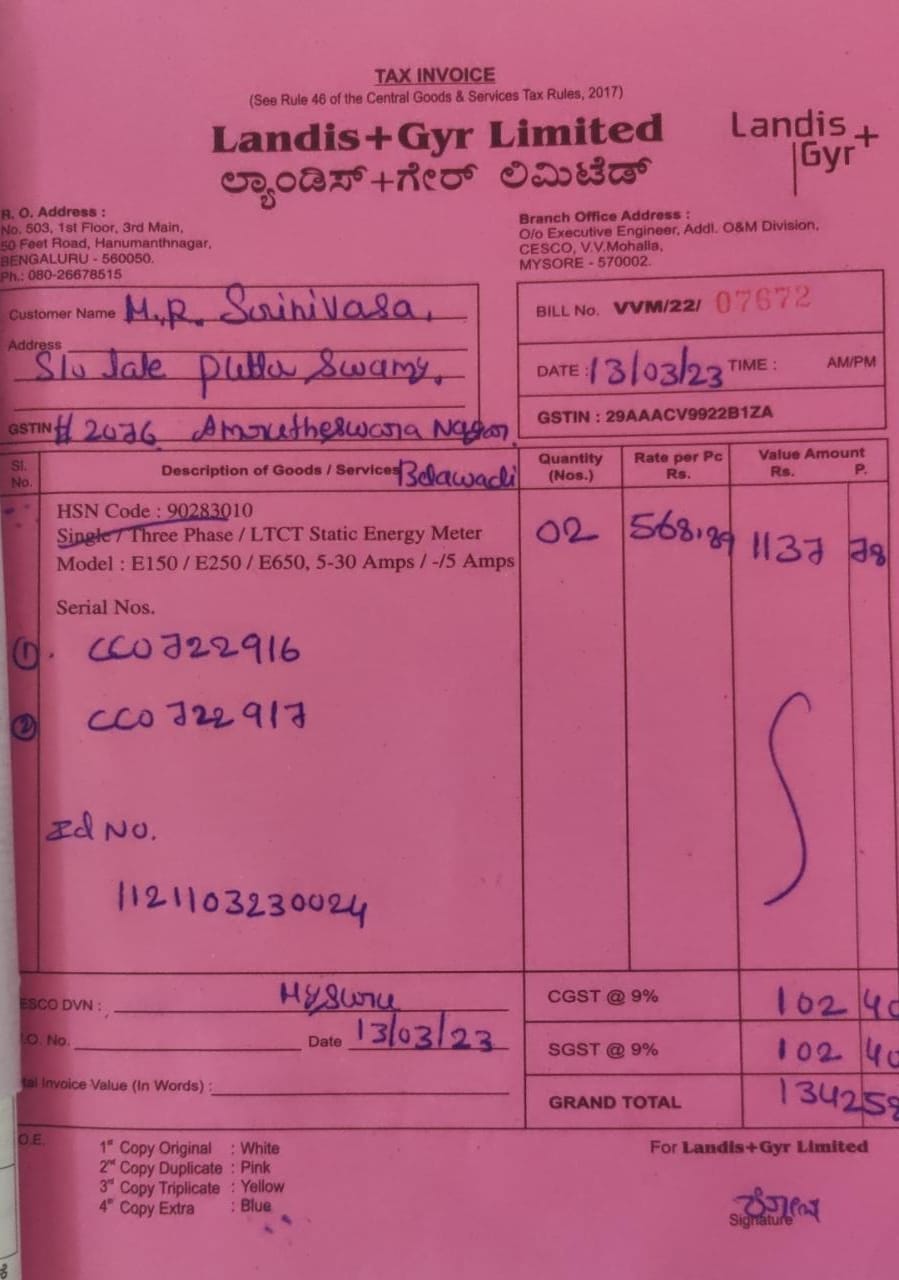 TAX INVOICE
(See Rule 46 of the Central Goods & Services Tax Rules, 2017)
Landis+Gyr Limited
ಲ್ಯಾಂಡಿಸ್+ಗೇರ್ ಲಿಮಿಟೆಡ್
Landis
Gyr+
R. O. Address :
No. 503, 1st Floor, 3rd Main,
50 Feet Road, Hanumanthnagar,
BENGALURU - 560050.
Ph.: 080-26678515
Branch Office Address :
O/o Executive Engineer, Addl. O&M Division,
CESCO, V.V.Mohalla,
MYSORE - 570002.
Customer Name M.R. Srinivasa,
Address
S/o late Putta Swamy,
GSTIN # 2076 Amrutheswara Nagar
Belawadi
BILL No. VVM/22/ 07672
DATE : 13/03/23 TIME : AM/PM
GSTIN : 29AAACV9922B1ZA
Sl. No. Description of Goods / Services Quantity (Nos.) Rate per Pc Rs. Value Amount Rs. P.
HSN Code : 90283010
Single / Three Phase / LTCT Static Energy Meter 02 568.89 1137 78
Model : E150 / E250 / E650, 5-30 Amps / -/5 Amps
Serial Nos.
1. CC0722916
2 CC0722917
Id No.
1121103230024
ESCO DVN : Mysuru
.O. No. Date 13/03/23
tal Invoice Value (In Words) :
CGST @ 9% 102 40
SGST @ 9% 102 40
GRAND TOTAL 134258
O.E.
1st Copy Original : White
2nd Copy Duplicate : Pink
3rd Copy Triplicate : Yellow
4th Copy Extra : Blue
For Landis+Gyr Limited
Signature